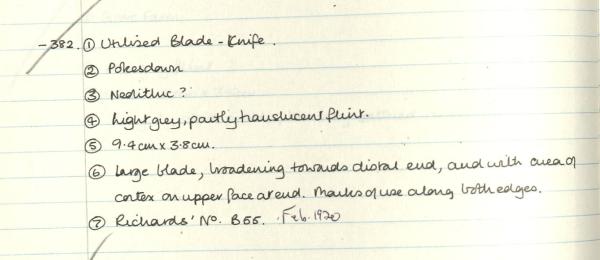 - 382. ① Utilised Blade - Knife.
② Pokesdown
③ Neolithic?
④ Light grey, partly translucent flint.
⑤ 9.4cm x 3.8cm.
⑥ Large blade, broadening towards distal end, and with area of
cortex on upper face at end. Marks of use along both edges.
⑦ Richards' No. B55. Feb. 1920